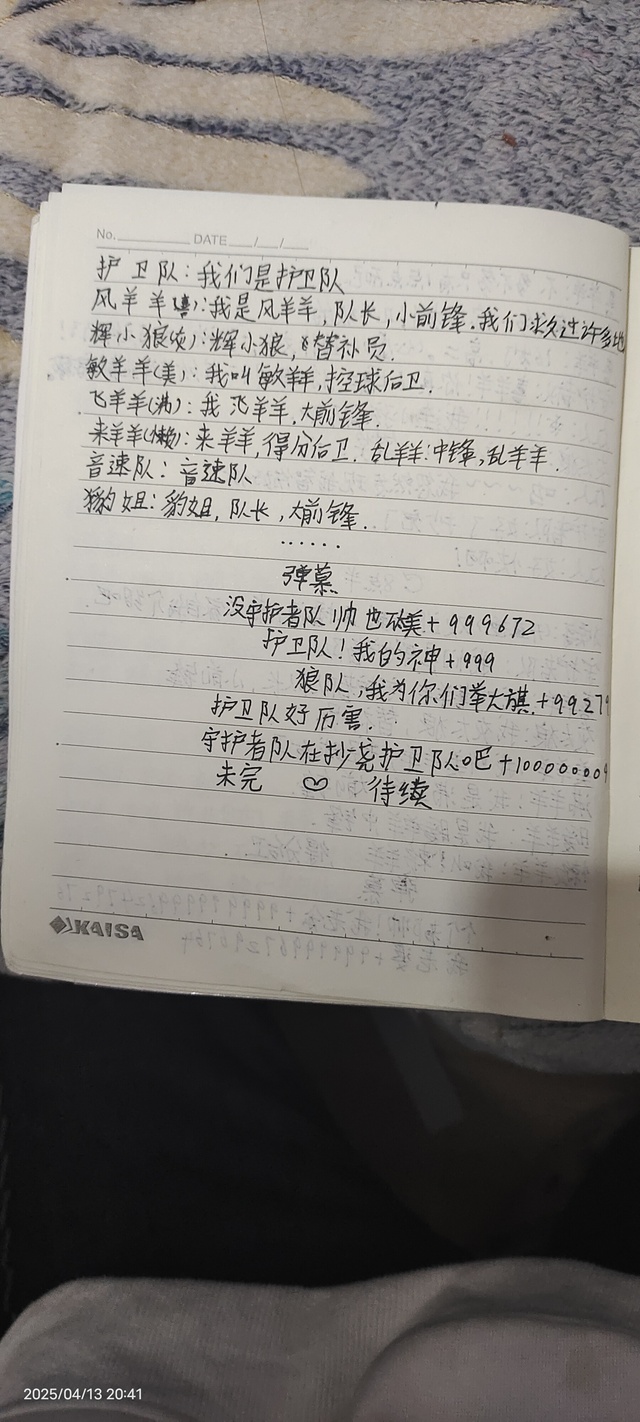 No. DATE / /
护卫队:我们是护卫队
风羊羊(喜):我是风羊羊,队长,小前锋.我们求久过许多地
辉小狼(灰):辉小狼,替补员.
敏羊羊(美):我叫敏羊羊,控球后卫.
飞羊羊(沸):我飞羊羊,大前锋.
来羊羊(懒):来羊羊,得分后卫.乱羊羊:中锋,乱羊羊.
音速队:音速队
豹姐:豹姐,队长,大前锋.
......
弹慕
没守护者队帅也不美+999672
护卫队!我的神+999
狼队,我为你们举大旗+99279
护卫队好厉害.
守护者队在抄袭护卫队吧+100000009
未完 ♡ 待续
KAISA
2025/04/13 20:41